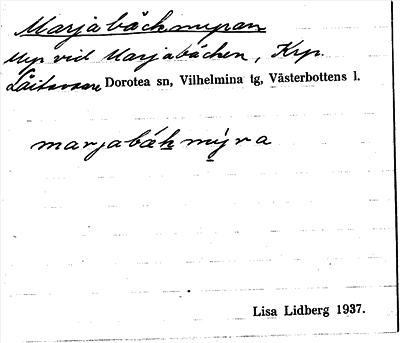 Marjabäckmyran
Myr vid Marjabäcken, Krp.
Låitavare Dorotea sn, Vilhelmina tg, Västerbottens l.
marjabäk mýra
Lisa Lidberg 1937.